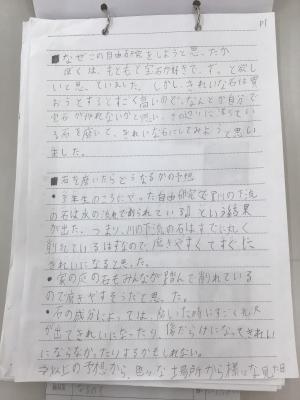 ■なぜこの自由研究をしようと思ったか
ぼくは、もともと宝石が好きで、ずっと欲し
いと思っていました。しかし、きれいな石は買
おうとするとすごく高いので、なんとか自分で
宝石が作れないかと思い、その辺りに落ちてい
る石を磨いて、きれいな石にしてみようと思い
ました。
■石を磨いたらどうなるかの予想
・3年生のころにやった自由研究で「川の下流
の石は水の流れで削られている」という結果
が出た。つまり、川の下流の石はすでに丸く
削れているはずなので、磨きやすくてすぐに
きれいになると思った。
・家の庭の石もみんなが踏んで削れている
ので磨きやすそうだと思った。
・石の成分によっては、磨いた時にすごく光沢
が出てきれいになったり、傷だらけになってきれい
にならなかったりするかもしれない。
⇒以上の予想から、色々な場所から様々な見た目